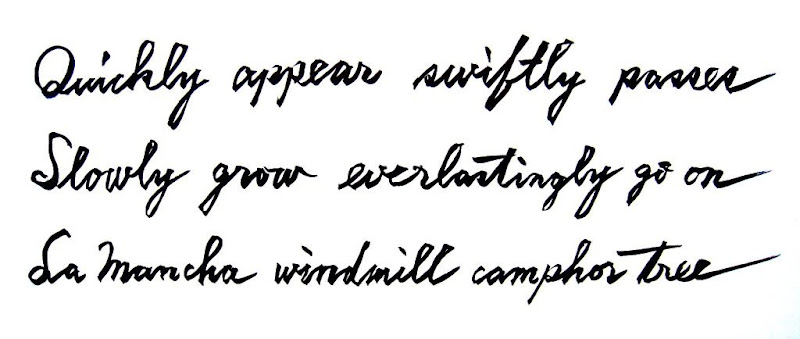 Quickly appear swiftly passes
Slowly grow everlastingly go on
La Mancha windmill camphor tree